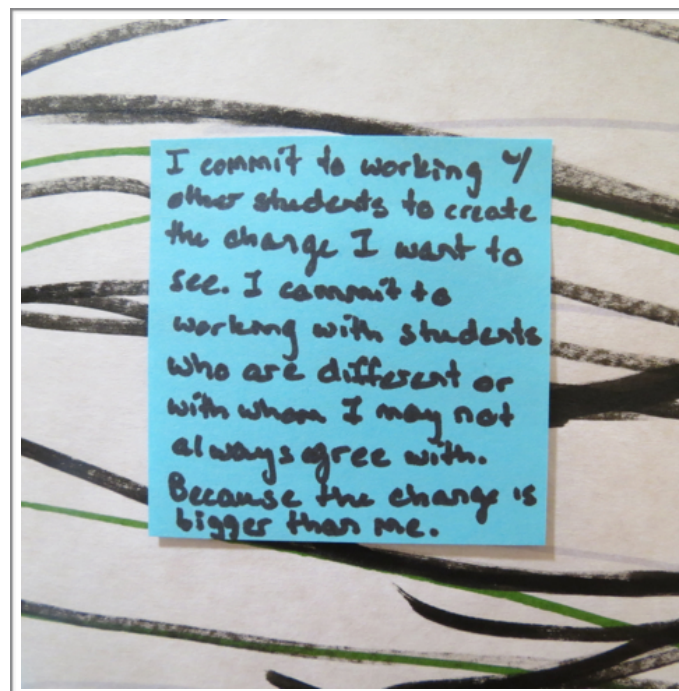 I commit to working w/
other students to create
the change I want to
see. I commit to
working with students
who are different or
with whom I may not
always agree with.
Because the change is
bigger than me.